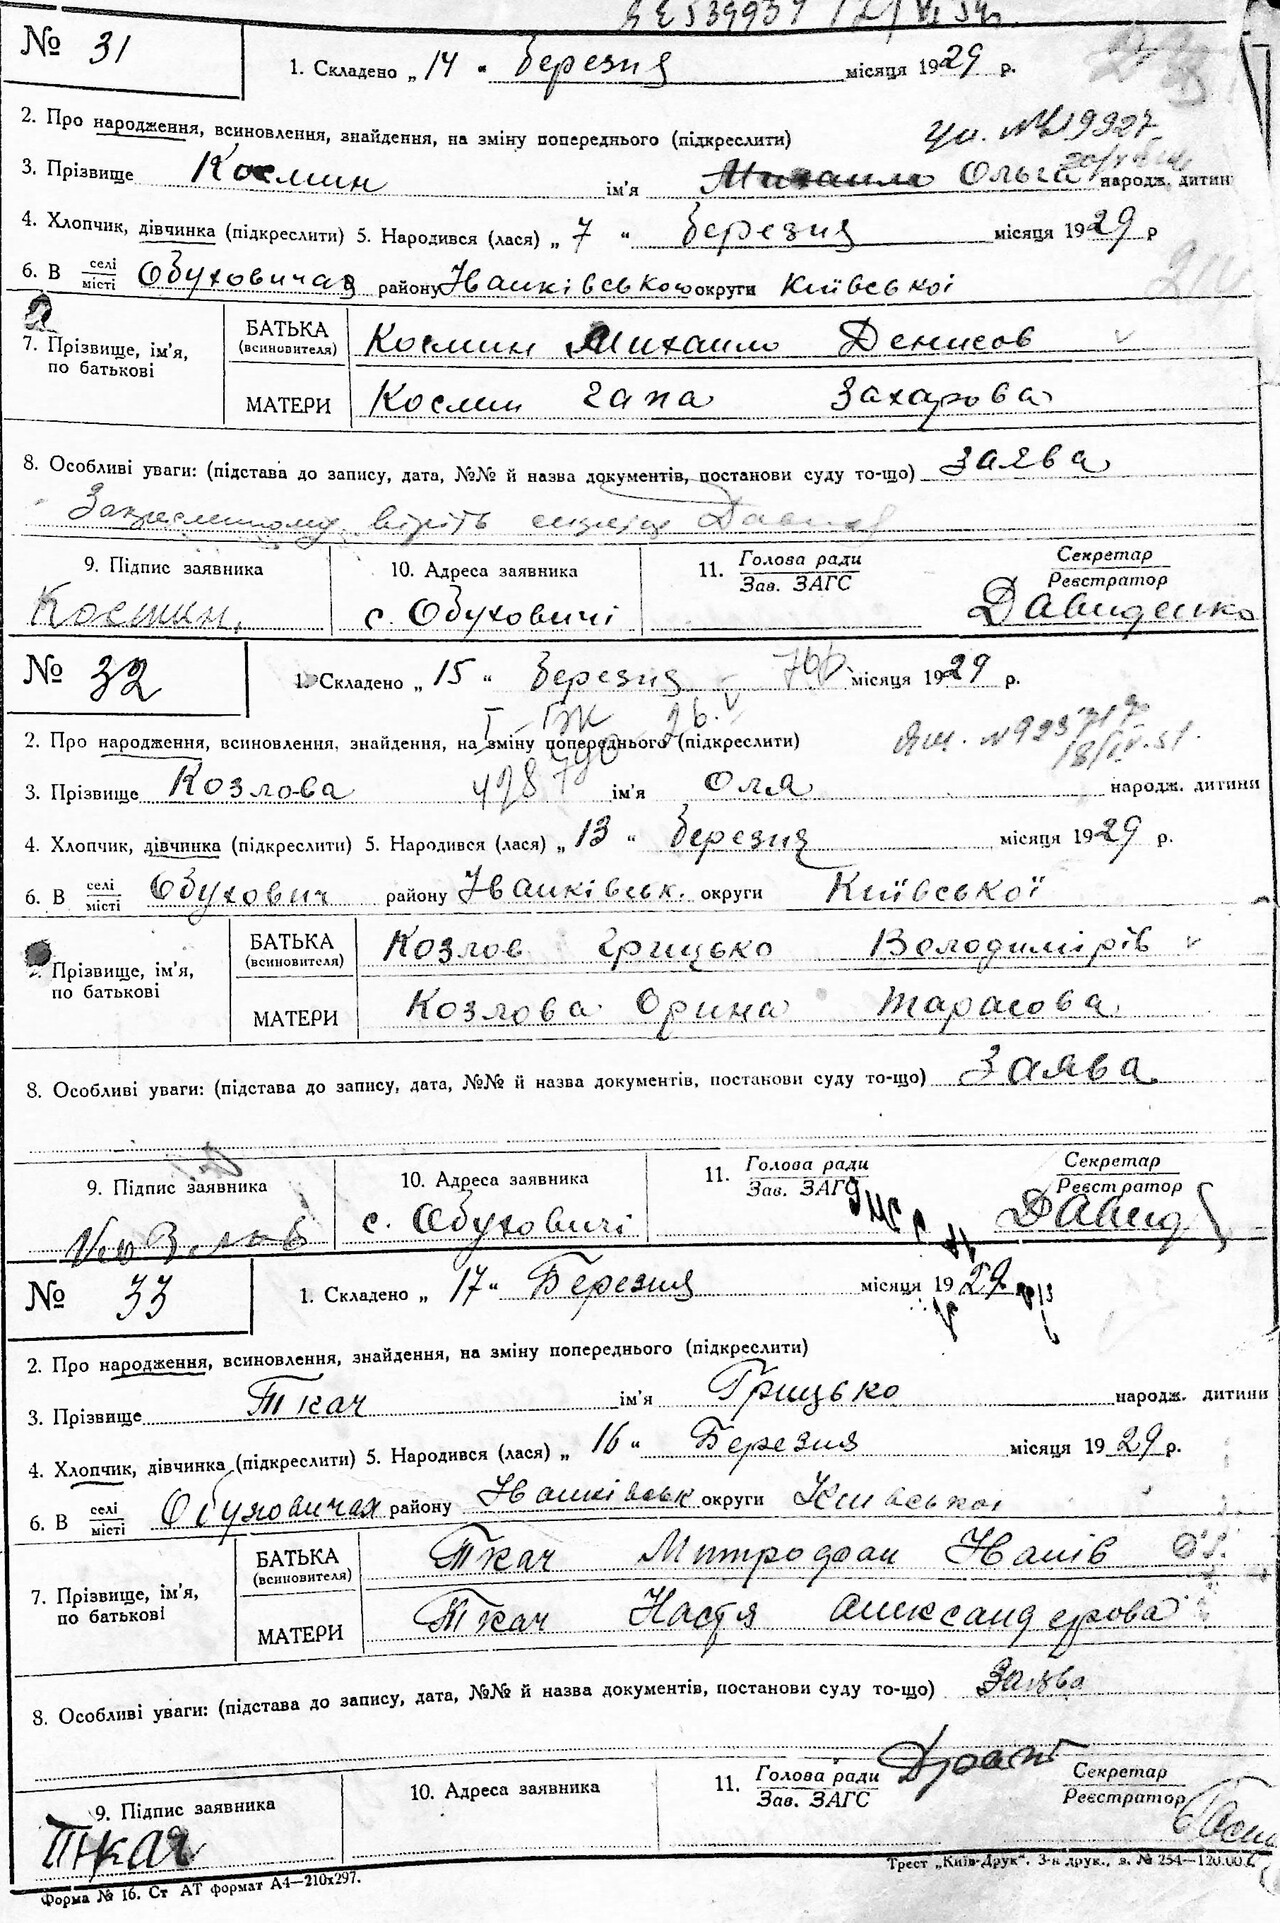 № 31
1. Складено „ 14 “ березня місяця 1929 р.
2. Про народження, всиновлення, знайдення, на зміну попереднього (підкреслити)
3. Прізвище Космин ім'я Михаило Ольга народж. дитини
4. Хлопчик, дівчинка (підкреслити) 5. Народився (лася) „ 7 “ березня місяця 1929 р
6. В селі/місті Обуховичах району Іванківського округи Київської
7. Прізвище, ім'я, по батькові
БАТЬКА (всиновителя) Космин Михаило Денисов
МАТЕРИ Космин Гапа Захарова
8. Особливі уваги: (підстава до запису, дата, №№ й назва документів, постанови суду то-що) заява
Закресленному віріть
9. Підпис заявника
10. Адреса заявника
11. Голова ради
Зав. ЗАГС
Секретар
Реєстратор
Космин,
с. Обуховичі
Давиденко
№ 32
1. Складено „ 15 “ березня місяця 1929 р.
2. Про народження, всиновлення, знайдення, на зміну попереднього (підкреслити)
3. Прізвище Козлова ім'я Оля народж. дитини
4. Хлопчик, дівчинка (підкреслити) 5. Народився (лася) „ 13 “ березня місяця 1929 р.
6. В селі/місті Обухович району Іванківськ. округи Київської
7. Прізвище, ім'я, по батькові
БАТЬКА (всиновителя) Козлов Грицько Володимірів
МАТЕРИ Козлова Орина Тарасова
8. Особливі уваги: (підстава до запису, дата, №№ й назва документів, постанови суду то-що) Заява
9. Підпис заявника
10. Адреса заявника
11. Голова ради
Зав. ЗАГС
Секретар
Реєстратор
с. Обуховичі
Давид
№ 33
1. Складено „ 17 “ Березня місяця 1929
2. Про народження, всиновлення, знайдення, на зміну попереднього (підкреслити)
3. Прізвище Ткач ім'я Грицько народж. дитини
4. Хлопчик, дівчинка (підкреслити) 5. Народився (лася) „ 16 “ Березня місяця 1929 р.
6. В селі/місті Обуховичах району Іванківськ округи Київської
7. Прізвище, ім'я, по батькові
БАТЬКА (всиновителя) Ткач Митрофан Іванів
МАТЕРИ Ткач Настя Александрова
8. Особливі уваги: (підстава до запису, дата, №№ й назва документів, постанови суду то-що) Заява
9. Підпис заявника
10. Адреса заявника
11. Голова ради
Зав. ЗАГС
Секретар
Реєстратор
Ткач
Форма № 16. Ст АТ формат А4—210x297.
Трест „Київ-Друк“. 3-я друк., з. № 254—120.00